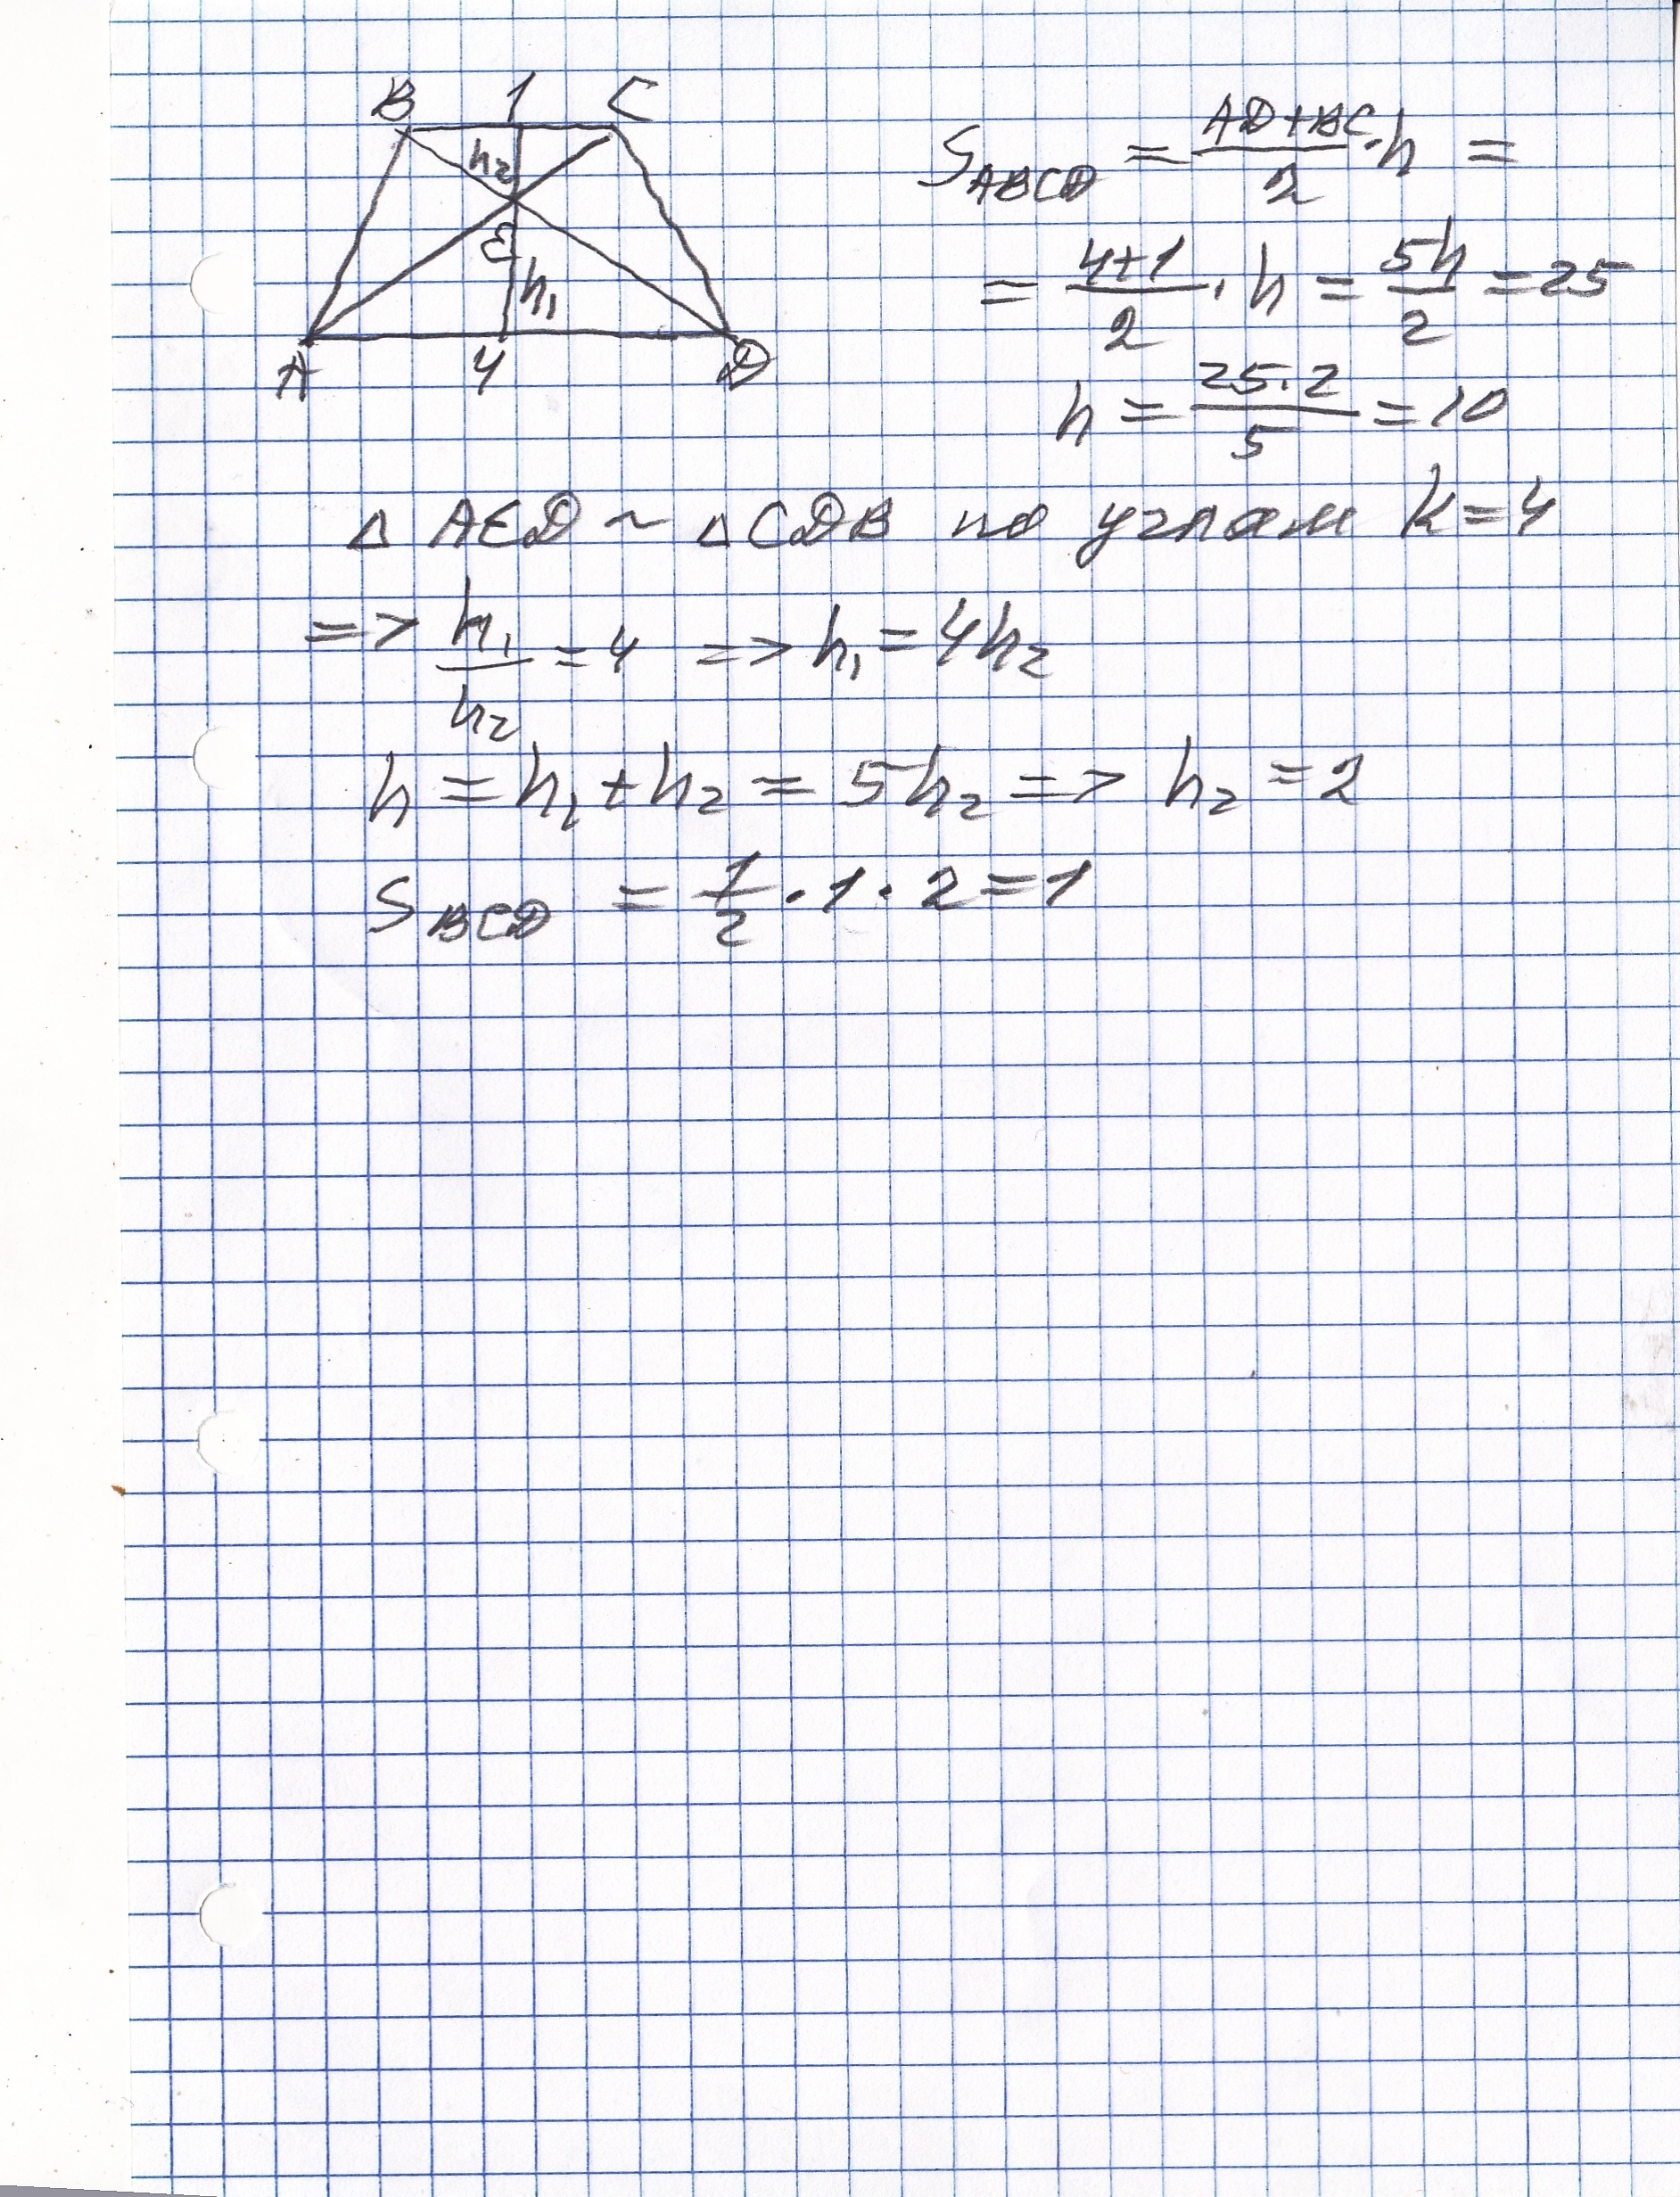 B 1 C
h₂
E
h₁
A 4 D
S_ABCD = (AD+BC)/2 · h =
= (4+1)/2 · h = 5h/2 = 25
h = (25·2)/5 = 10
Δ AED ~ Δ CDB по углам k=4
=> h₁/h₂ = 4 => h₁ = 4h₂
h = h₁ + h₂ = 5h₂ => h₂ = 2
S_BCD = 1/2 · 1 · 2 = 1